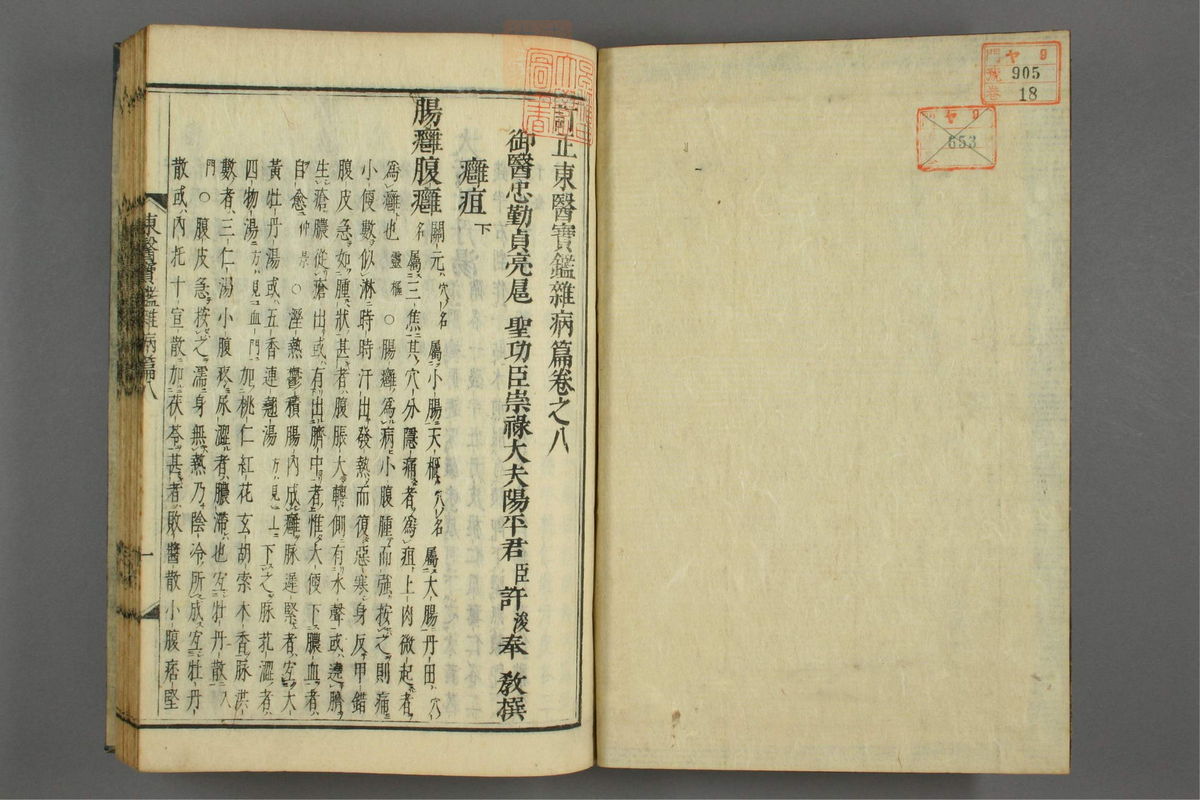 門 ヤ 9
號 905
卷 18
ヤ 9
653
訂正東醫寶鑑雜病篇卷之八
御醫忠勤貞亮扈 聖功臣崇祿大夫陽平君臣許浚奉 敎撰
癰疽下
腸癰腹癰
關元穴名屬小腸天樞穴名屬大腸丹田穴
名屬三焦其穴分隱痛者爲疽上肉微起者
爲癰也靈樞○腸癰爲病小腹腫而强按之則痛
小便數似淋時時汗出發熱而復惡寒身反甲錯
腹皮急如腫狀甚者腹脹大轉側有水聲或遶臍
生瘡膿從瘡出或有出臍中者惟大便下膿血者
自愈仲景○溼熱鬱積腸內成癰脉遲緊者宜大
黃牡丹湯或五香連翹湯方見上下之脉芤澀者
四物湯方見血門加桃仁紅花玄胡索木香脉洪
數者三仁湯小腹疼尿澀者膿滯也宜牡丹散入
門○腹皮急按之濡身無熱乃陰冷所成宜牡丹
散或內托十宣散加茯苓甚者敗醬散小腹痞堅
東醫寶鑑雜病篇八
一